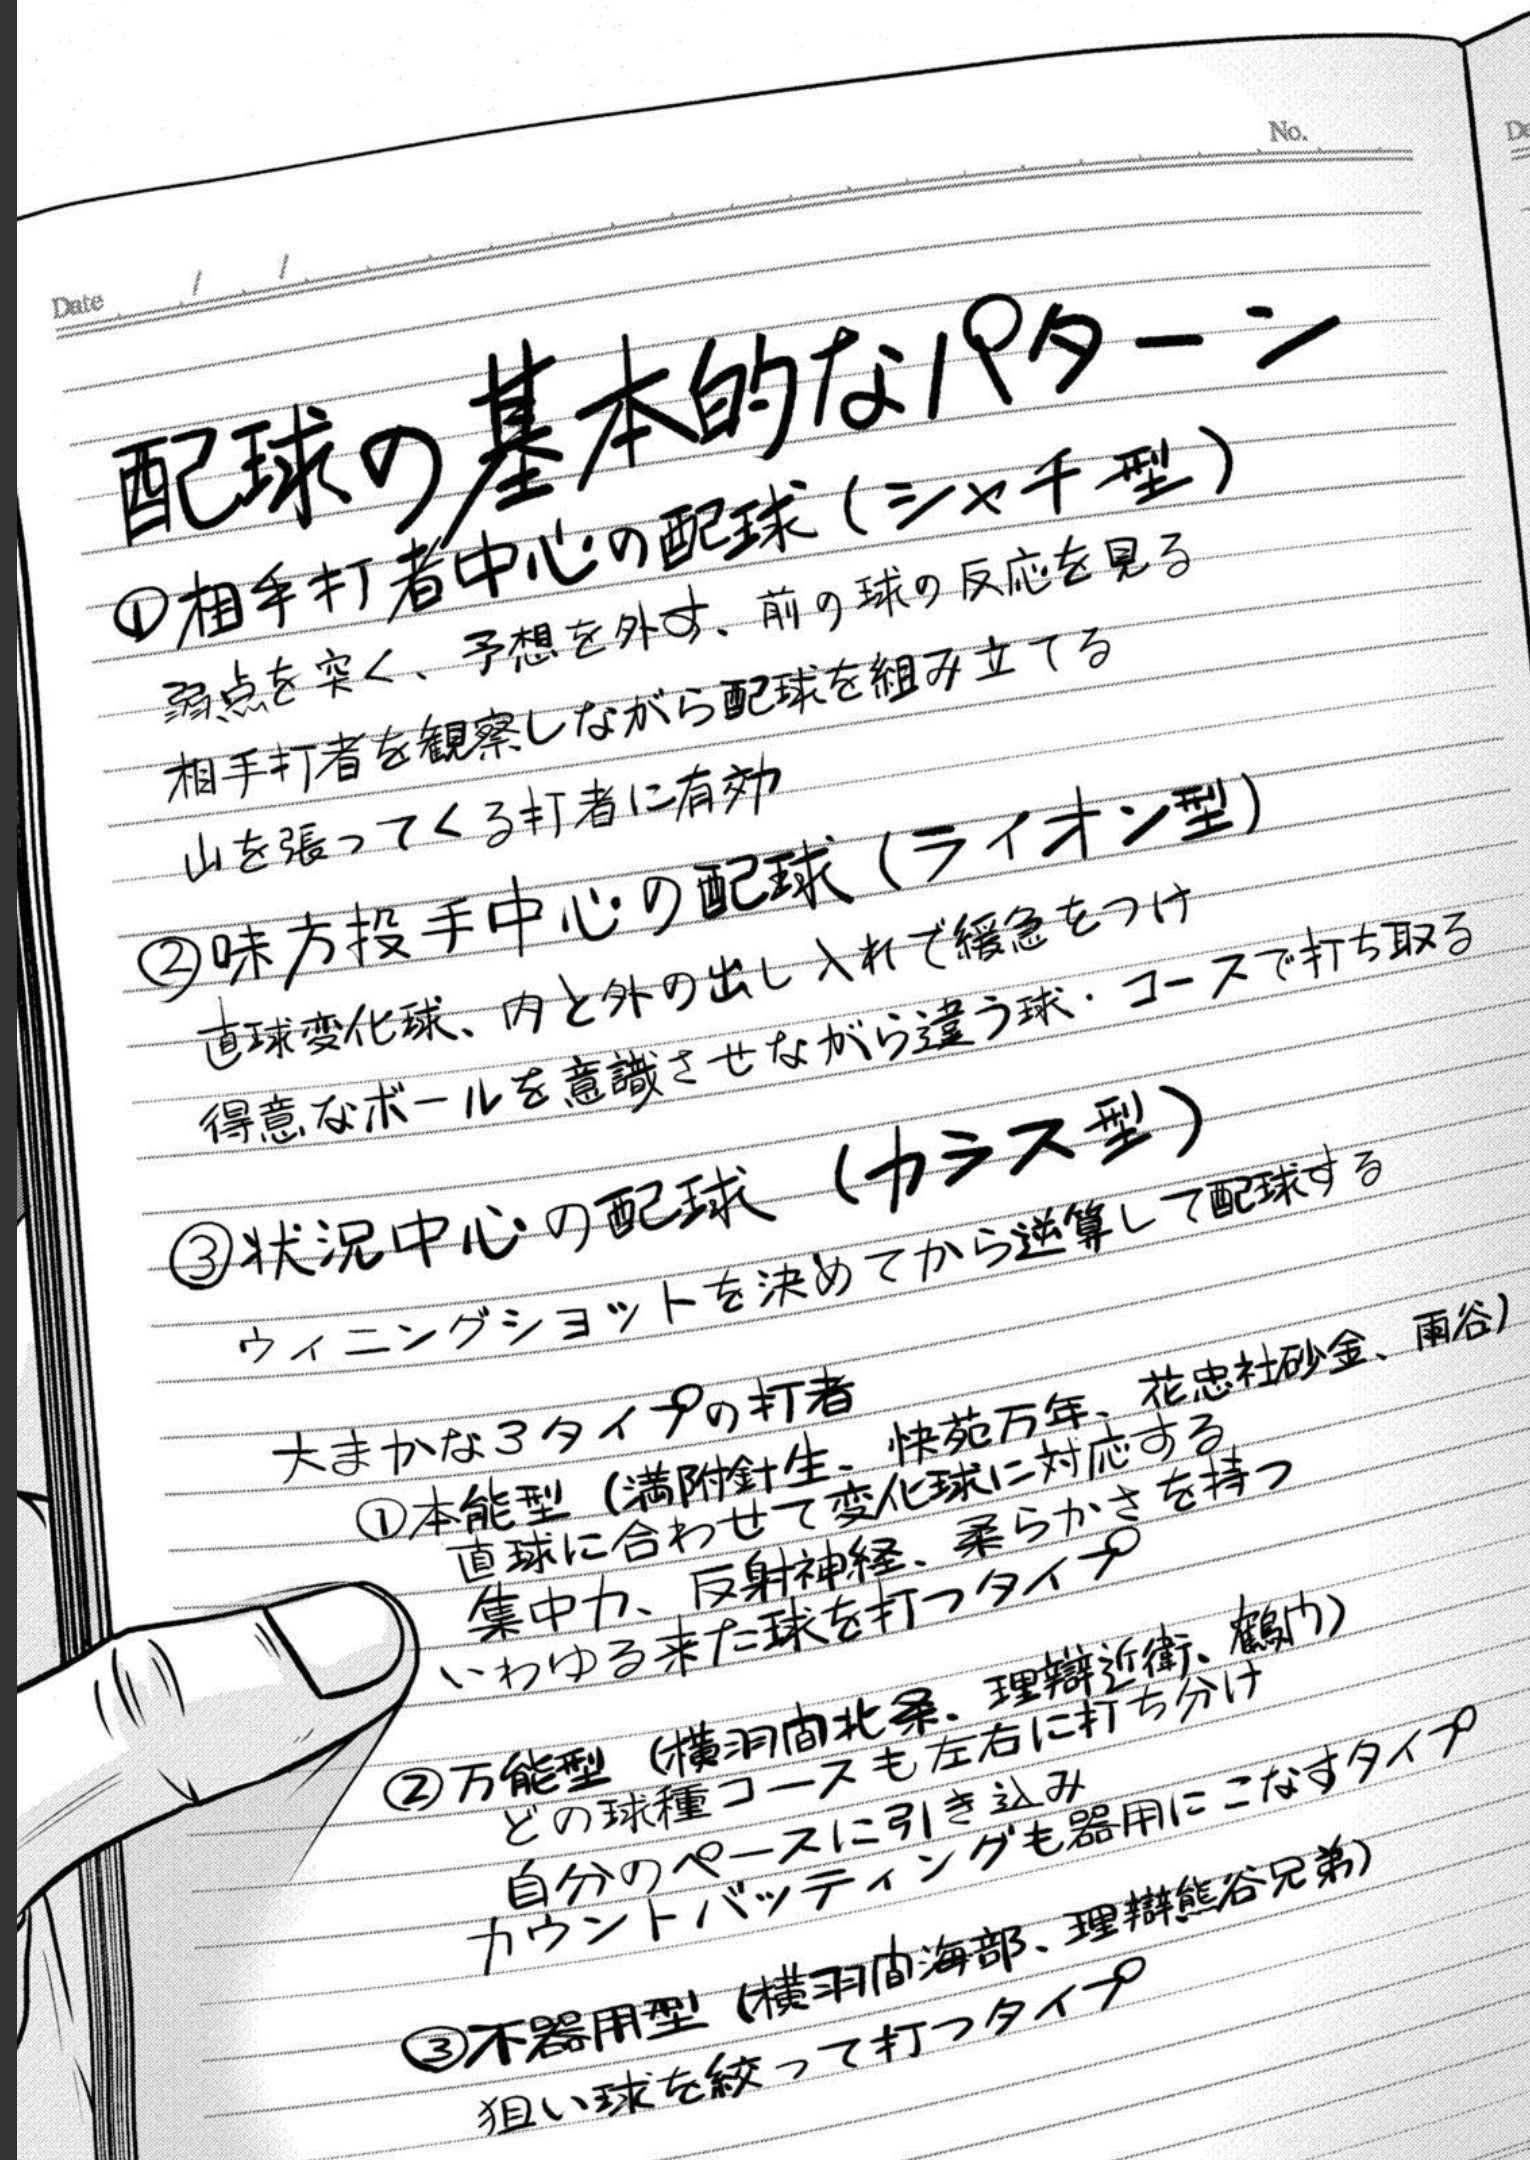 No.
Date / /
配球の基本的なパターン
①相手打者中心の配球(シャチ型)
弱点を突く、予想を外す、前の球の反応を見る
相手打者を観察しながら配球を組み立てる
山を張ってくる打者に有効
②味方投手中心の配球(ライオン型)
直球変化球、内と外の出し入れで緩急をつけ
得意なボールを意識させながら違う球・コースで打ち取る
③状況中心の配球(カラス型)
ウィニングショットを決めてから逆算して配球する
大まかな3タイプの打者
①本能型(満附針生、快苑万年、花忠社砂金、雨谷)
直球に合わせて変化球に対応する
集中力、反射神経、柔らかさを持つ
いわゆる来た球を打つタイプ
②万能型(横羽間北条、理辯近衛、鶴内)
どの球種コースも左右に打ち分け
自分のペースに引き込み
カウントバッティングも器用にこなすタイプ
③不器用型(横羽間海部、理辯熊谷兄弟)
狙い球を絞って打つタイプ